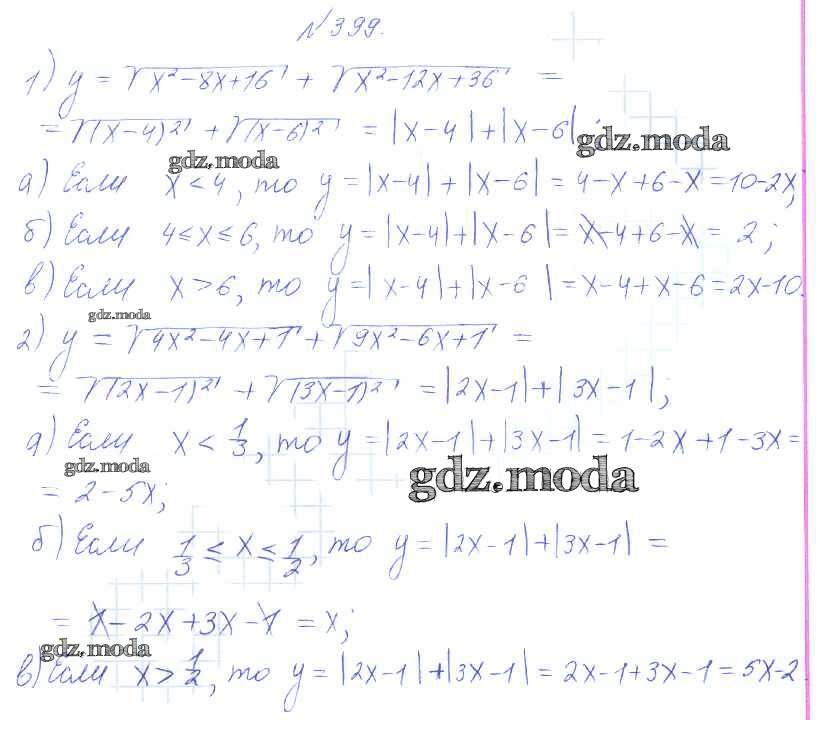 №399.
1) y = √(x²-8x+16) + √(x²-12x+36) =
= √((x-4)²) + √((x-6)²) = |x-4|+|x-6|;
gdz.moda
gdz.moda
а) Если x<4, то y=|x-4|+|x-6|=4-x+6-x=10-2x;
б) Если 4≤x≤6, то y=|x-4|+|x-6|=x-4+6-x=2;
в) Если x>6, то y=|x-4|+|x-6|=x-4+x-6=2x-10.
gdz.moda
2) y = √(4x²-4x+1) + √(9x²-6x+1) =
= √((2x-1)²) + √((3x-1)²) = |2x-1|+|3x-1|;
а) Если x<1/3, то y=|2x-1|+|3x-1|=1-2x+1-3x=
gdz.moda
gdz.moda
= 2-5x;
б) Если 1/3≤x≤1/2, то y=|2x-1|+|3x-1|=
= 1-2x+3x-1=x;
gdz.moda
в) Если x>1/2, то y=|2x-1|+|3x-1|=2x-1+3x-1=5x-2.